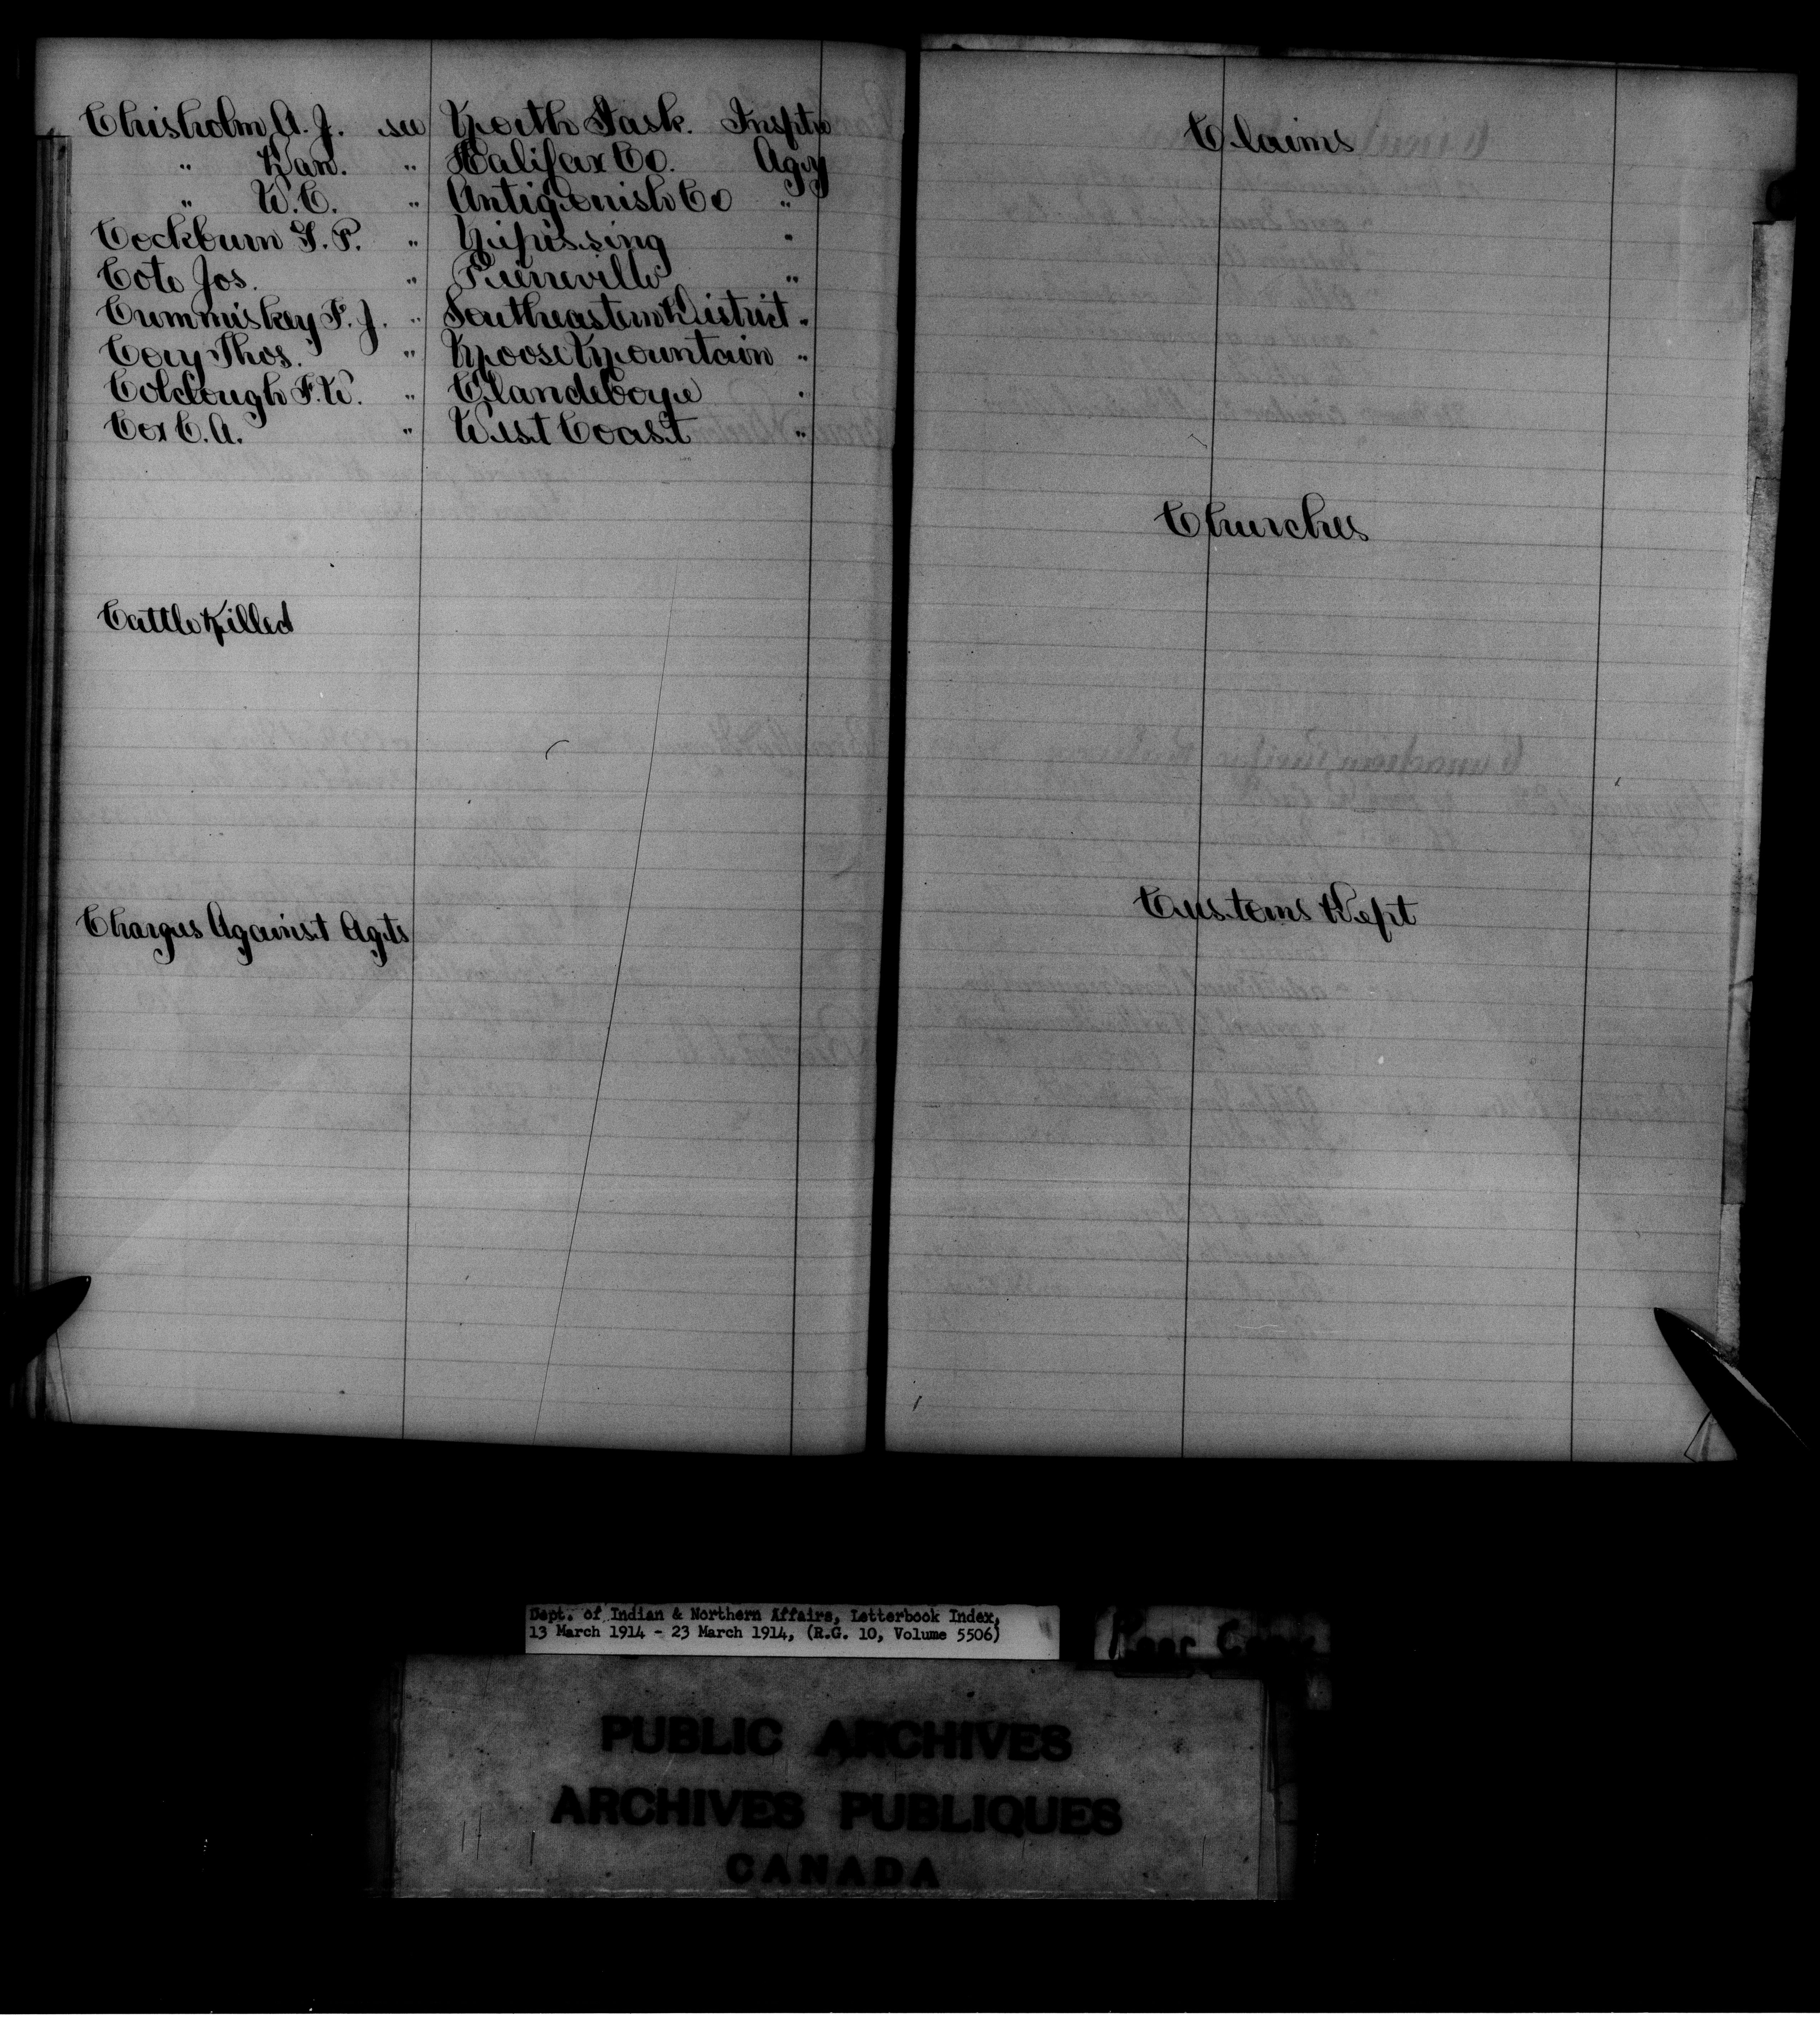 Chisholm A. J. see North Sask. Insptr
" Dan. " Halifax Co. Agcy
" W. C. " Antigonish Co "
Cockburn G. P. " Nipissing "
Cote Jos. " Pierreville "
Cummiskey F. J. " Southeastern District "
Cory Thos. " Moose Mountain "
Colclough F. W. " Clandeboye "
Cox C. A. " West Coast "
Cattle Killed
Charges Against Agts
Claims
Churches
Customs Dept
Dept. of Indian & Northern Affairs, Letterbook Index,
13 March 1914 - 23 March 1914, (R.G. 10, Volume 5506)
Poor Copy
PUBLIC ARCHIVES
ARCHIVES PUBLIQUES
CANADA